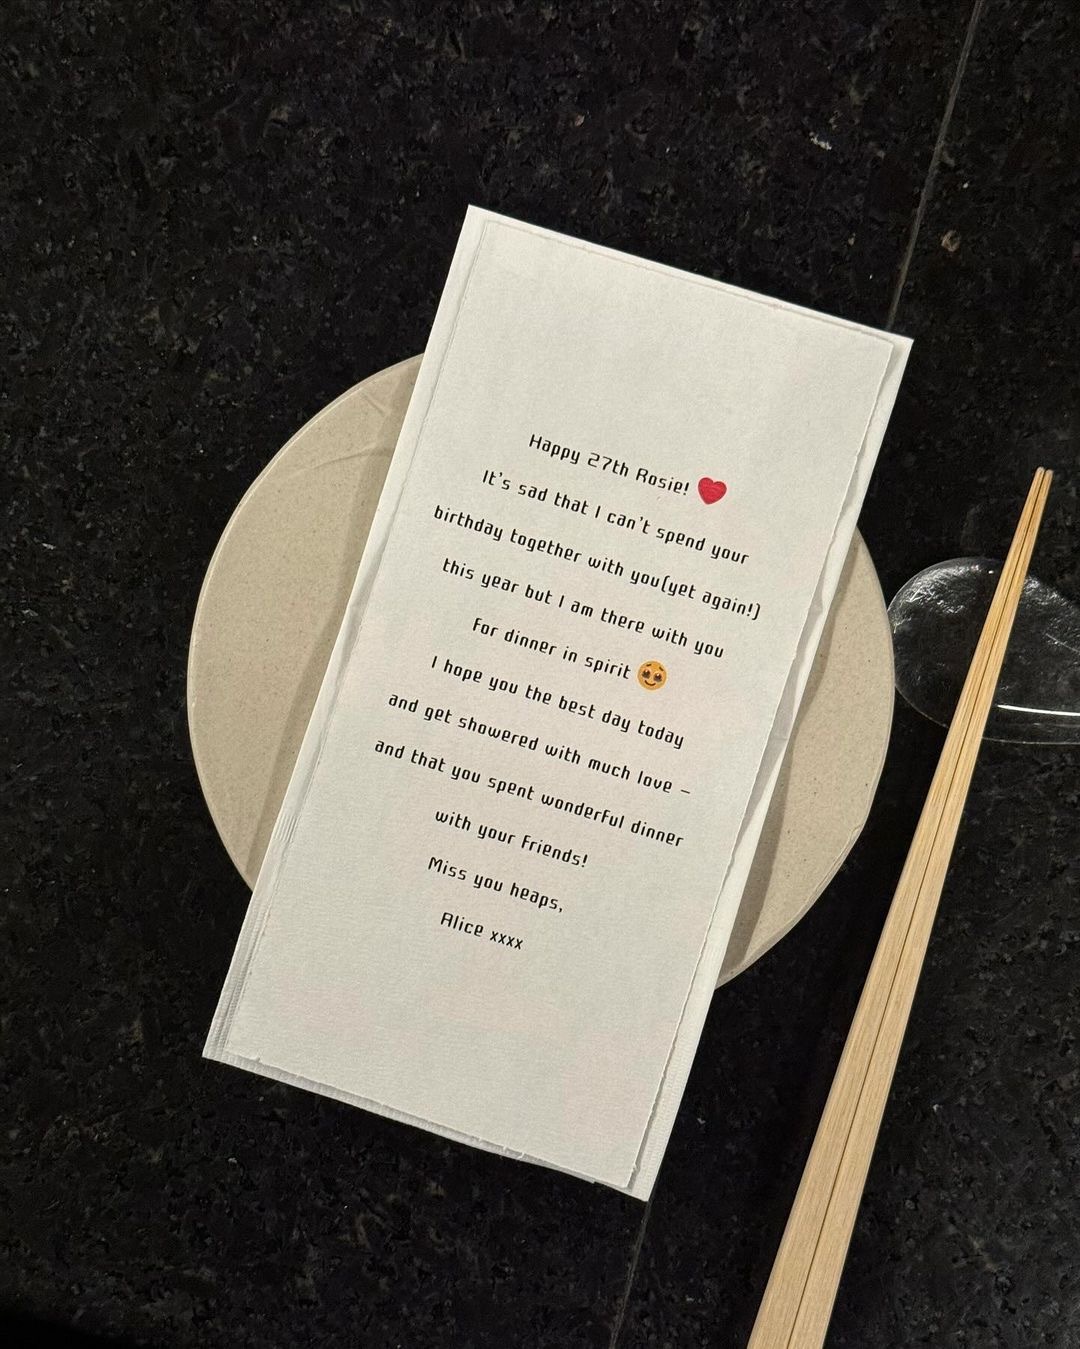 Happy 27th Rosie! ❤️
It's sad that I can't spend your
birthday together with you(yet again!)
this year but I am there with you
for dinner in spirit 🥹
I hope you the best day today
and get showered with much love –
and that you spent wonderful dinner
with your friends!
Miss you heaps,
Alice xxxx